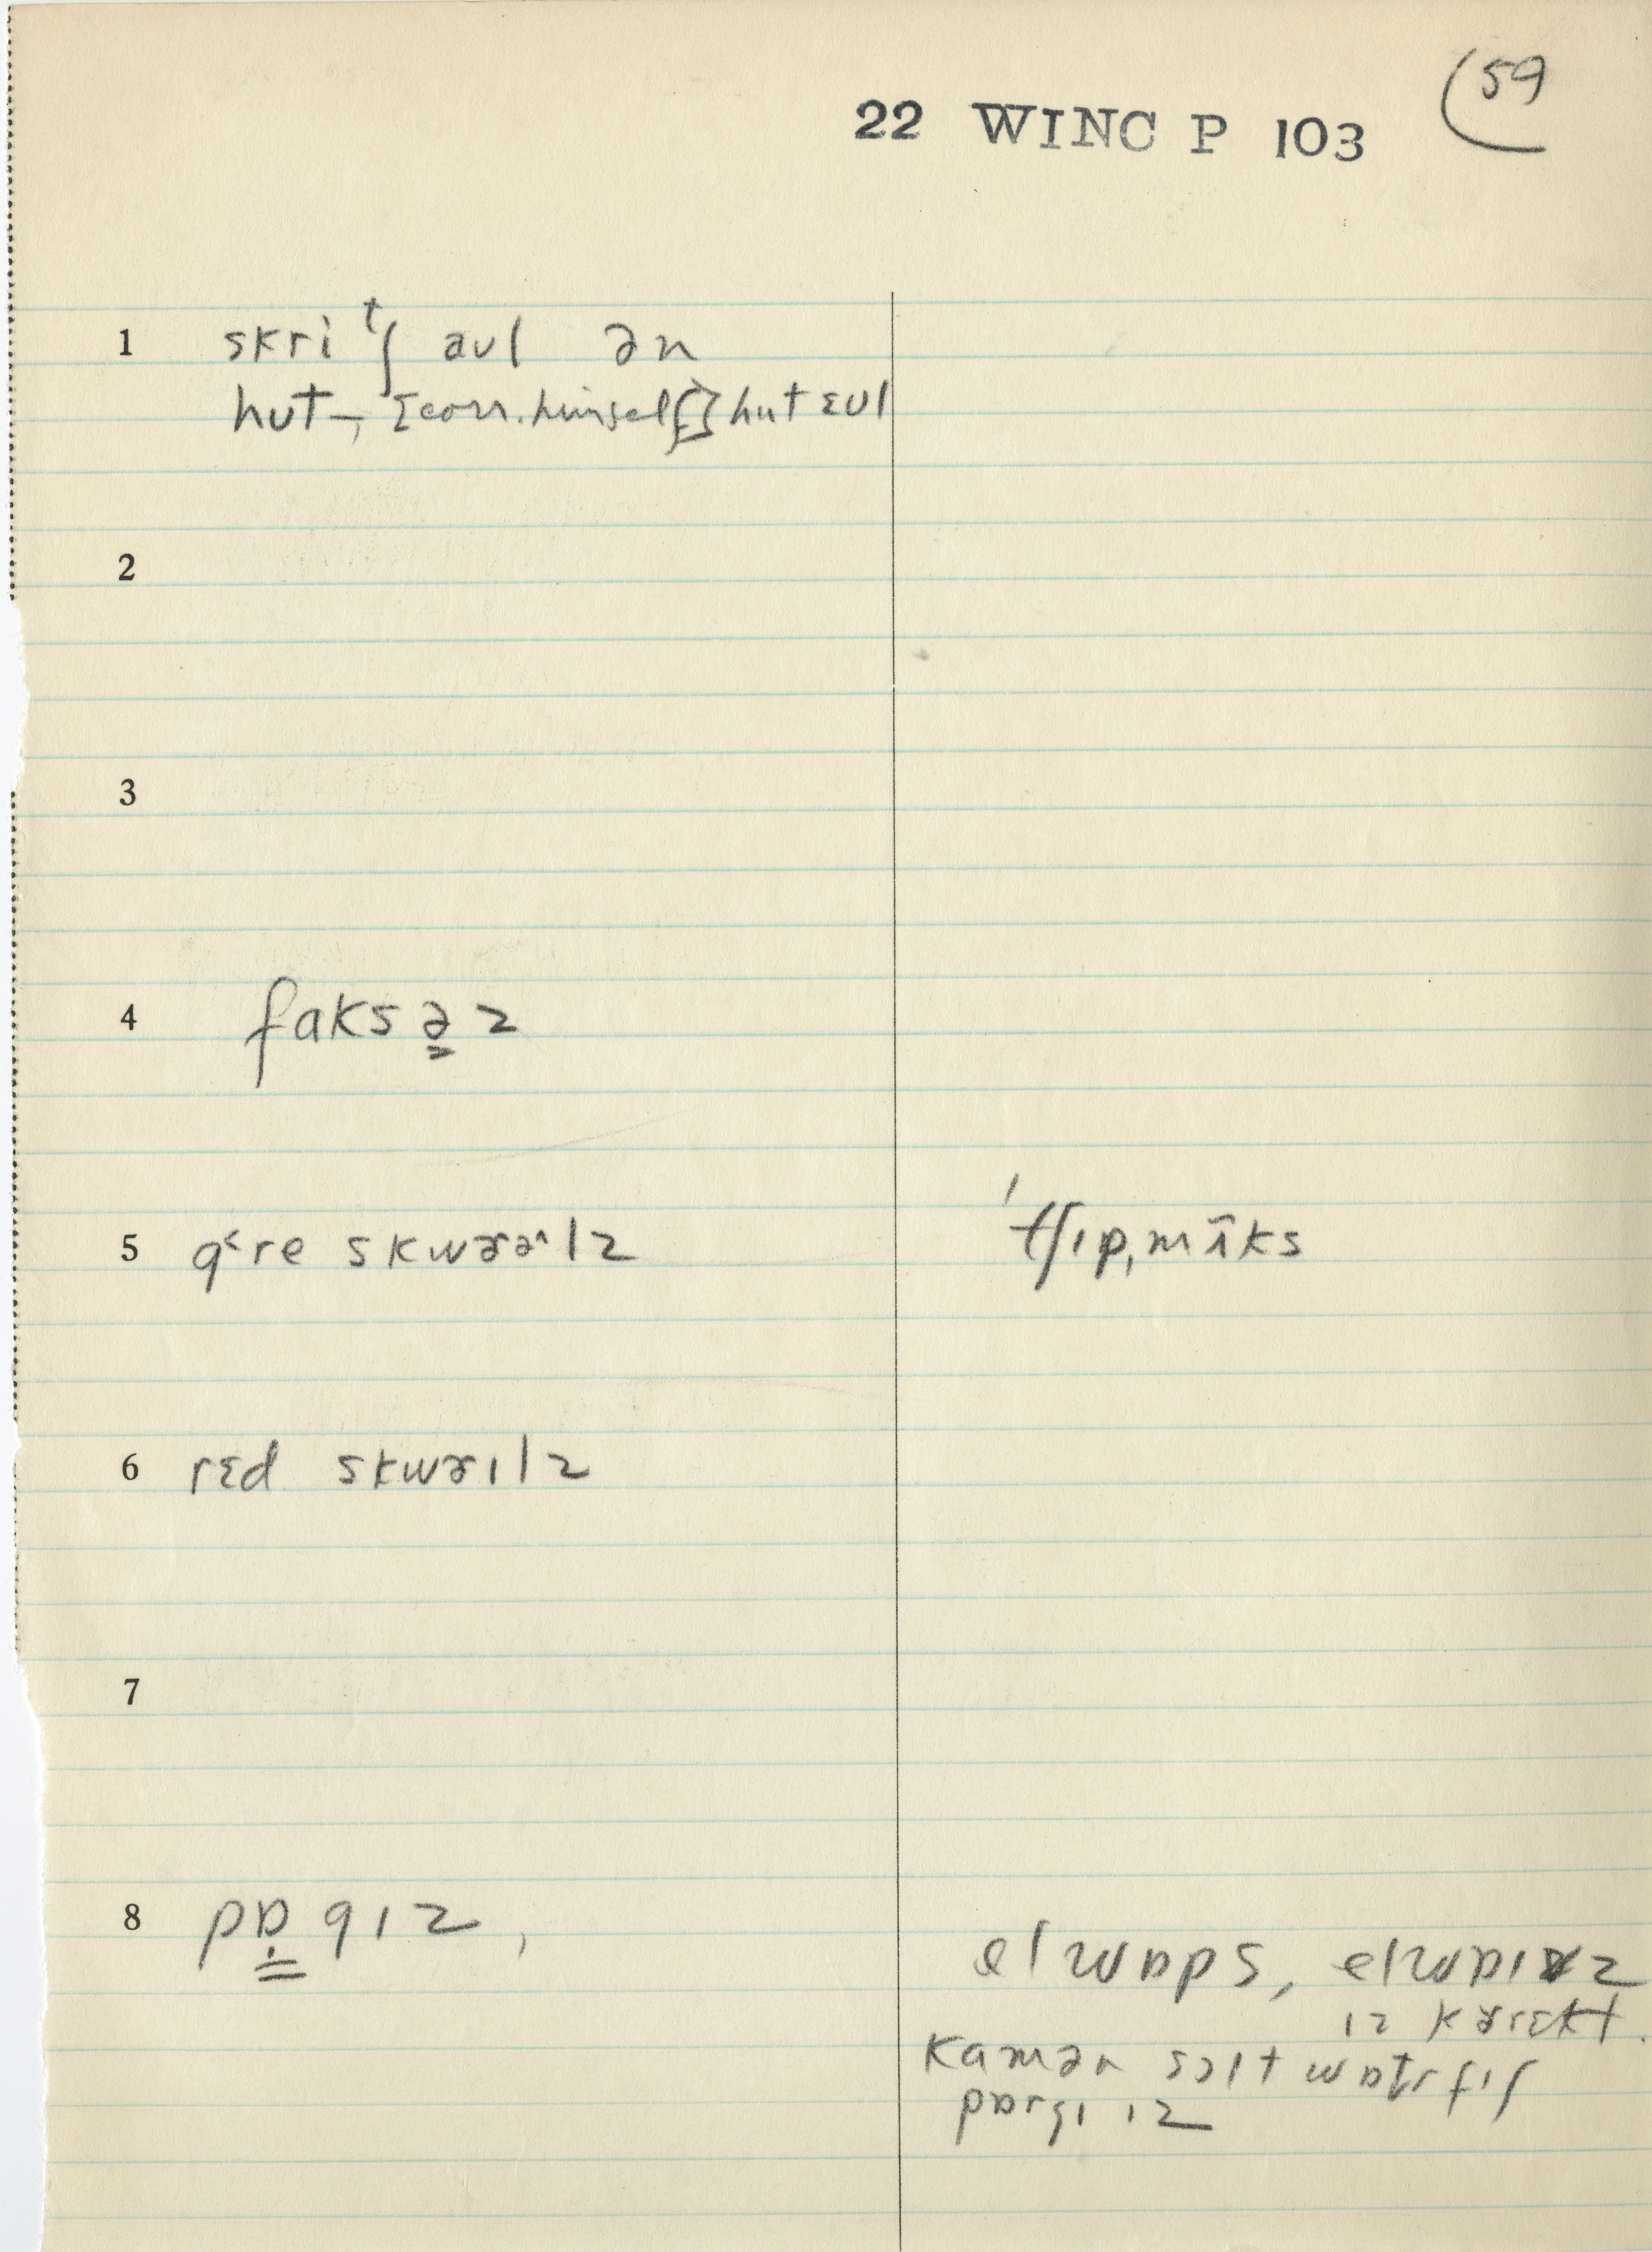 (59
22 WINC P 103
1 skriᵗʃ aʊl ən
hut-, [corr. himself] hut ɛʊl
2
3
4 faksə̳z
5 g˂re skwɚəˆlz
'tʃɪp,mɪ̃ks
6 rɛd skwɚɪlz
7
8 pɒ̳gɪz,
elwɒps, elwɒɪz
ɪz kɚrɛkt.
kamən sɔlt wɒtr fɪʃ
pɒrgɪ ɪz